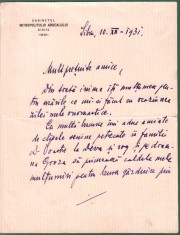 CABINETUL
MITROPOLITULUI ARDEALULUI
SIBIU
Sibiu, 10.XII-1931.
Mult prețuite amice,
Din toată inima îți mulțumesc pen-
tru urările ce mi-ai făcut cu ocaziunea
zilei mele onomastice.
Cu multă bucurie îmi aduc aminte
de clipele senine petrecute în familia
D-Voastre la Deva și rog pe doam-
na Groza să primească caldele mele
mulțumiri pentru buna găzduire prin